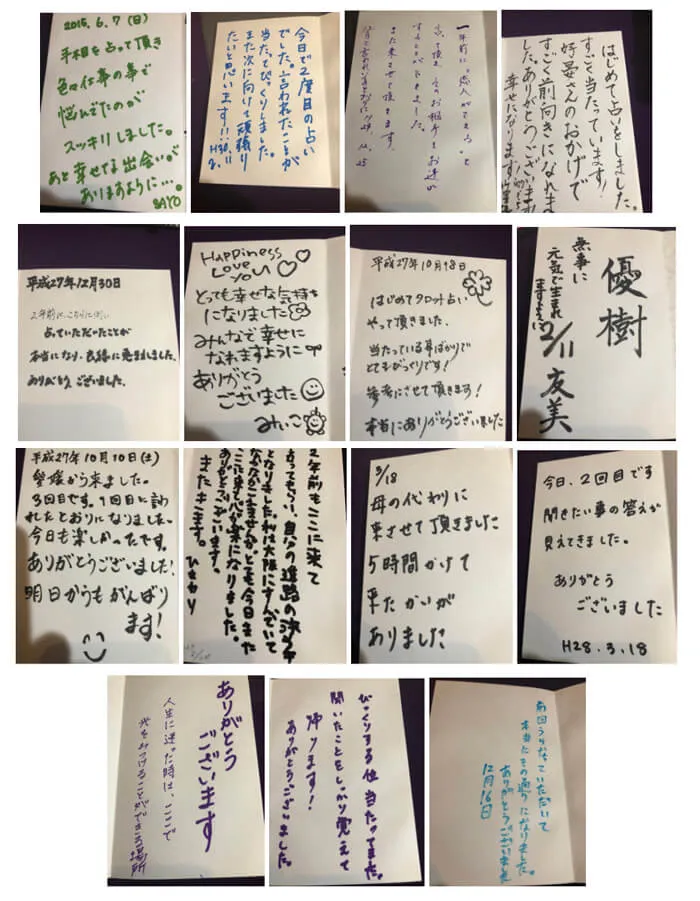 2015.6.7(日)
手相を占って頂き
色々仕事の事で
悩んでたのが
スッキリしました。
あと幸せな出会いが
ありますように…。
SAYO
今日で2度目の占い
でした。言われたことが
当たってびっくりしました。
また次に向けて頑張り
たいと思います!!
一年前に"恋人ができる"と
占って頂き、そのお相手とお逢い
することができました。
また来させて頂きます。
はじめて占いをしました。
すごく当たっています!
好晏さんのおかげで
すごく前向きになれま
した。ありがとうございます!
幸せになります
平成27年12月30日
2年前に、こちらに伺い
占っていただいたことが
本当になり、良縁に恵まれました。
ありがとうございました。
HAPPiNESS
Love
you
とっても幸せな気持ち
になりました
みんなで幸せに
なれますように
ありがとう
ございました
みぃこ
平成27年10月18日
はじめてタロット占い
やって頂きました。
当たっている事ばかりで
とてもびっくりです!
参考にさせて頂きます!
本当にありがとうございました
優樹
無事に
元気で生まれ
ますように
2/11 友美
平成27年10月10日(土)
愛媛から来ました。
3回目です。1回目に言わ
れたとおりになりました。
今日も楽しかったです。
ありがとうございました!
明日からもがんばり
ます!
2年前もここに来て
占ってもらい、自分の進路の決め手
となりました。私は大阪にすんでいて
なかなかこれませんが、とても今日また
ここに来て心が楽になりました。
ありがとうございます。
またきます。
ひとみ
3/18
母の代わりに
来させて頂きました
5時間かけて
来たかいが
ありました
今日、2回目です
聞きたい事の答えが
見えてきました。
ありがとう
ございました
H28.3.18
ありがとう
ございます
人生に迷った時は、ここで
光をみつけることができる場所
びっくりする位 当たってました。
聞いたことをしっかり覚えて
帰ります!
ありがとうございました。
前回うらなっていただいて
本当にその通りになりました。
ありがとうございました
12月16日